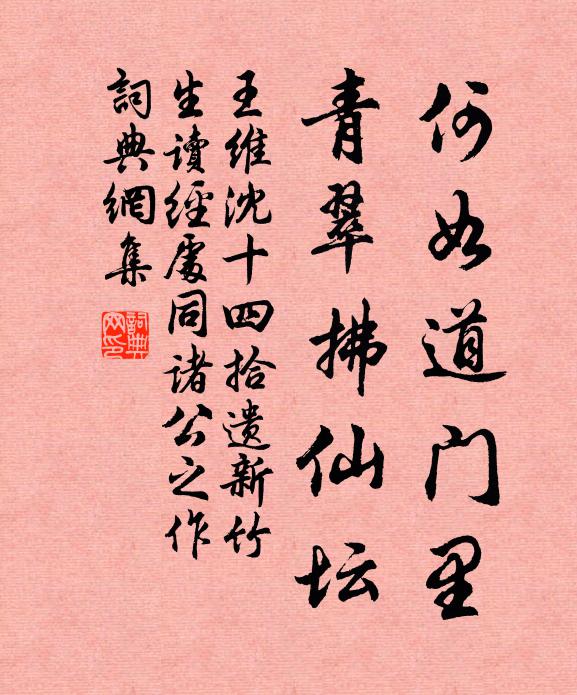 何如道门里
青翠拂仙坛
王维沈十四拾遗新竹
生讀經處同诸公之作
詞典網集
詞典網印